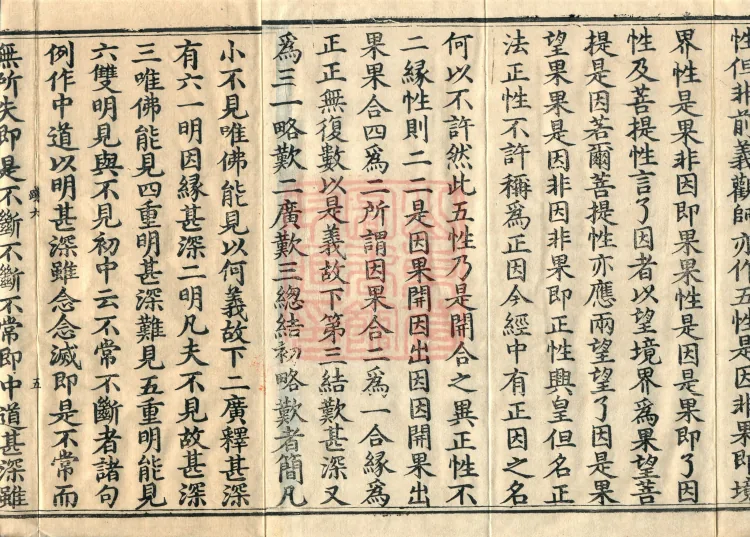 性但非前義觀師亦作五性是因非果即境
界性是果非因即果果性是因是果即了因
性及菩提性言了因者以望境界為果望菩
提是因若爾菩提性亦應兩望望了因是果
望果果是因非因非果即正性興皇但名正
法正性不許稱為正因今經中有正因之名
何以不許然此五性乃是開合之異正性不
二緣性則二二是因果開因出因因開果出
果果合四為二所謂因果合二為一合緣為
正正無復數以是義故下第三結歎甚深又
為三一略歎二廣歎三總結初略歎者簡凡
小不見唯佛能見以何義故下二廣釋甚深
有六一明因緣甚深二明凡夫不見故甚深
三唯佛能見四重明甚深難見五重明能見
六雙明見與不見初中云不常不斷者諸句
例作中道以明甚深雖念念滅即是不常而
六 五
無所失即是不斷不斷不常即中道甚深雖